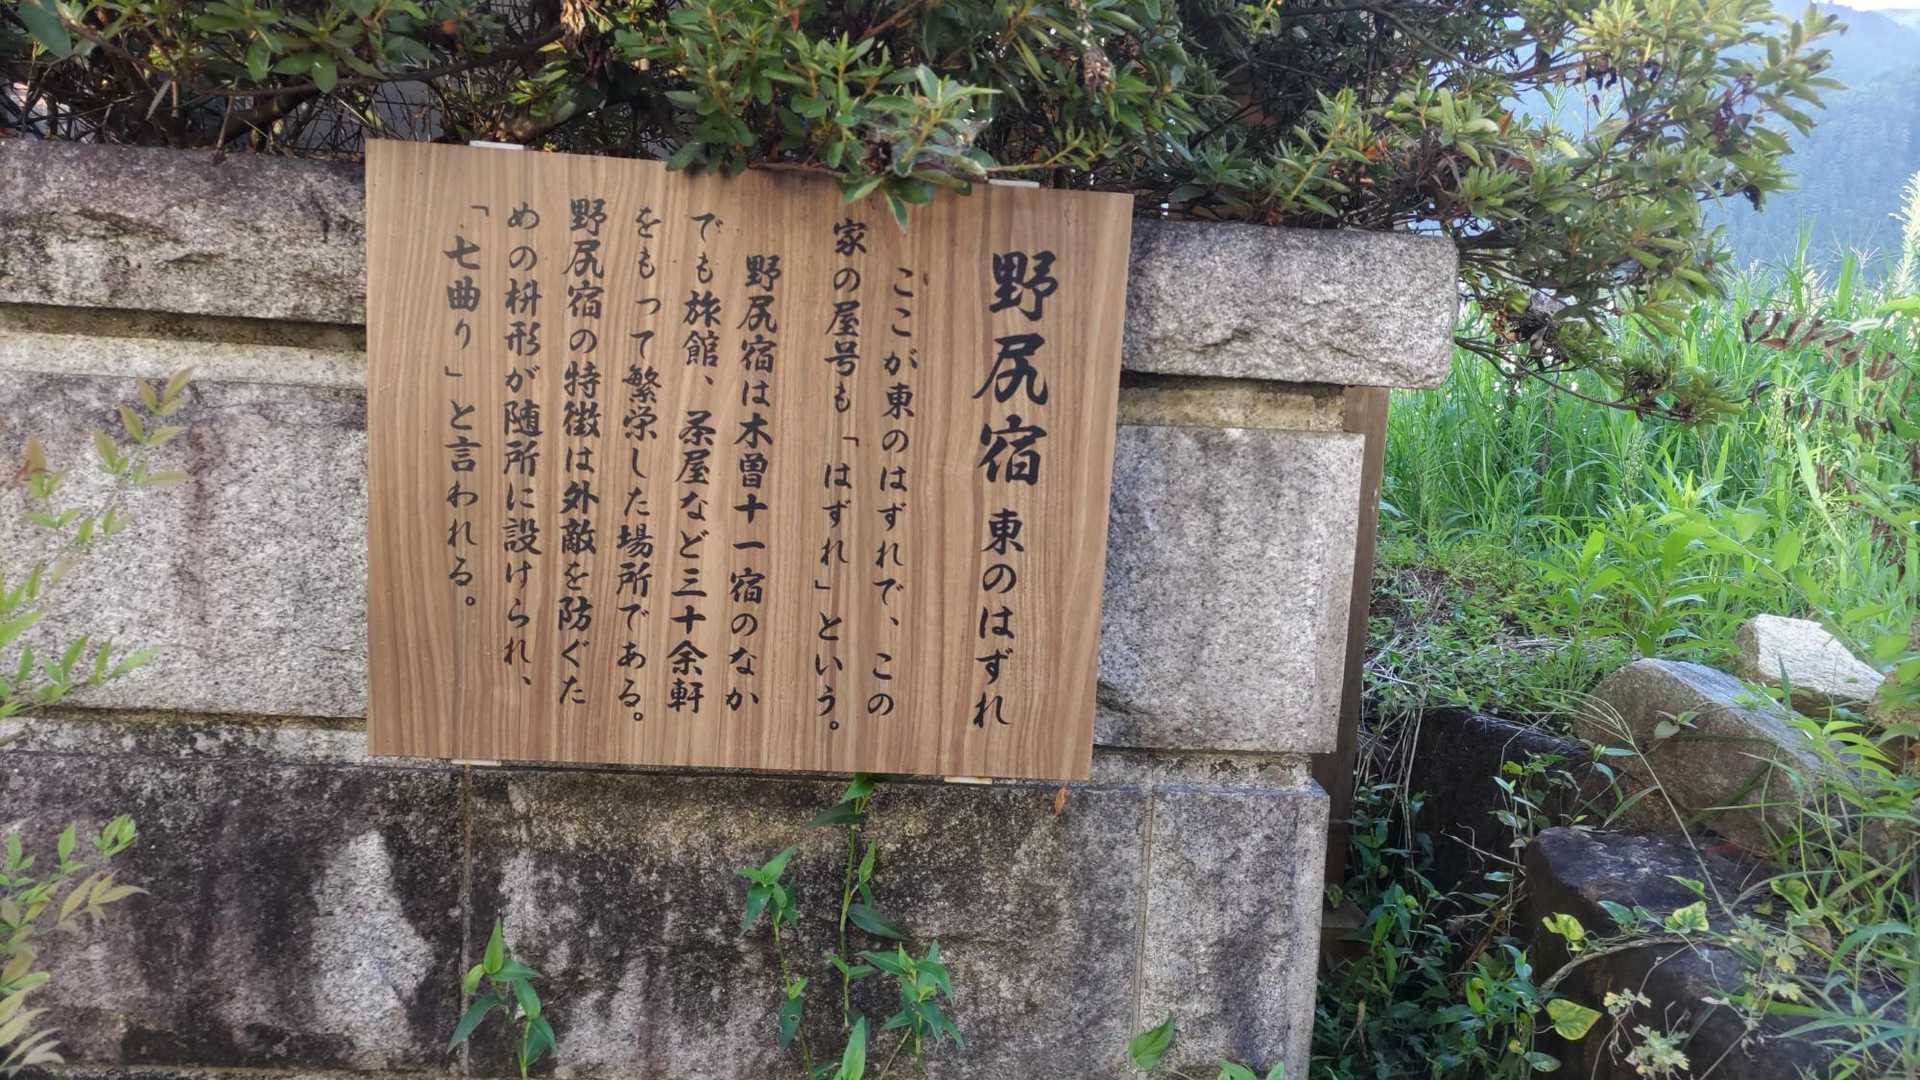 野尻宿 東のはずれ
ここが東のはずれで、この
家の屋号も「はずれ」という。
野尻宿は木曽十一宿のなか
でも旅館、茶屋など三十余軒
をもって繁栄した場所である。
野尻宿の特徴は外敵を防ぐた
めの枡形が随所に設けられ、
「七曲り」と言われる。